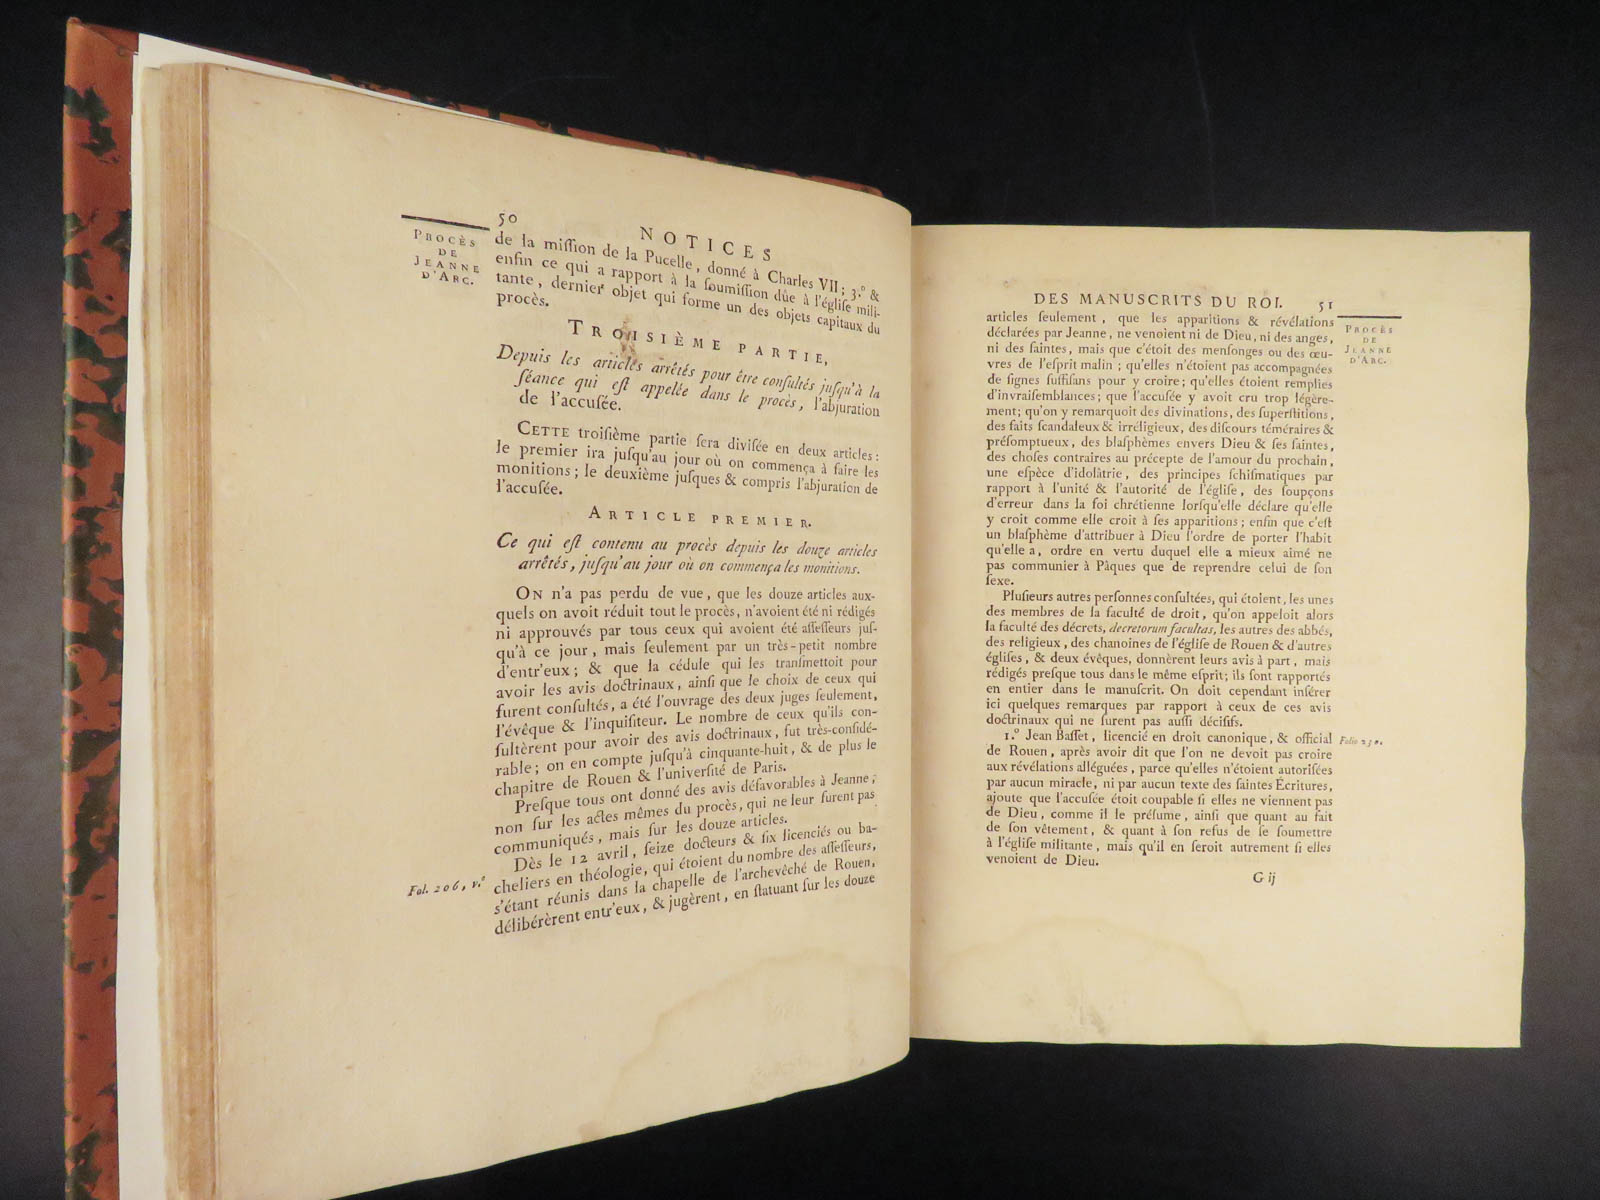 50
NOTICES
PROCÈS
DE
JEANNE
D'ARC.
de la miſſion de la Pucelle, donné à Charles VII; 3.° &
enfin ce qui a rapport à la ſoumiſſion dûe à l'égliſe mili-
tante, dernier objet qui forme un des objets capitaux du
procès.
TROISIÈME PARTIE,
Depuis les articles arrêtés pour être conſultés juſqu'à la
ſéance qui eſt appelée dans le procès, l'abjuration
de l'accuſée.
CETTE troiſième partie ſera diviſée en deux articles:
le premier ira juſqu'au jour où on commença à faire les
monitions; le deuxième juſques & compris l'abjuration de
l'accuſée.
ARTICLE PREMIER.
Ce qui eſt contenu au procès depuis les douze articles
arrêtés, juſqu'au jour où on commença les monitions.
ON n'a pas perdu de vue, que les douze articles aux-
quels on avoit réduit tout le procès, n'avoient été ni rédigés
ni approuvés par tous ceux qui avoient été aſſeſſeurs juſ-
qu'à ce jour, mais ſeulement par un très-petit nombre
d'entr'eux; & que la cédule qui les tranſmettoit pour
avoir les avis doctrinaux, ainſi que le choix de ceux qui
furent conſultés, a été l'ouvrage des deux juges ſeulement,
l'évêque & l'inquiſiteur. Le nombre de ceux qu'ils con-
ſultèrent pour avoir des avis doctrinaux, fut très-conſidé-
rable; on en compte juſqu'à cinquante-huit, & de plus le
chapitre de Rouen & l'univerſité de Paris.
Preſque tous ont donné des avis défavorables à Jeanne;
non ſur les actes mêmes du procès, qui ne leur furent pas
communiqués, mais ſur les douze articles.
Fol. 206, v.°
Dès le 12 avril, ſeize docteurs & ſix licenciés ou ba-
cheliers en théologie, qui étoient du nombre des aſſeſſeurs,
s'étant réunis dans la chapelle de l'archevêché de Rouen,
délibérèrent entr'eux, & jugèrent, en ſtatuant ſur les douze
DES MANUSCRITS DU ROI. 51
PROCÈS
DE
JEANNE
D'ARC.
articles ſeulement, que les apparitions & révélations
déclarées par Jeanne, ne venoient ni de Dieu, ni des anges,
ni des ſaintes, mais que c'étoit des menſonges ou des œu-
vres de l'eſprit malin; qu'elles n'étoient pas accompagnées
de ſignes ſuffiſans pour y croire; qu'elles étoient remplies
d'invraiſemblances; que l'accuſée y avoit cru trop légère-
ment; qu'on y remarquoit des divinations, des ſuperſtitions,
des faits ſcandaleux & irréligieux, des diſcours téméraires &
préſomptueux, des blaſphèmes envers Dieu & ſes ſaintes,
des choſes contraires au précepte de l'amour du prochain,
une eſpèce d'idolâtrie, des principes ſchiſmatiques par
rapport à l'unité & l'autorité de l'égliſe, des ſoupçons
d'erreur dans la foi chrétienne lorſqu'elle déclare qu'elle
y croit comme elle croit à ſes apparitions; enfin que c'eſt
un blaſphème d'attribuer à Dieu l'ordre de porter l'habit
qu'elle a, ordre en vertu duquel elle a mieux aimé ne
pas communier à Pâques que de reprendre celui de ſon
ſexe.
Pluſieurs autres perſonnes conſultées, qui étoient, les unes
des membres de la faculté de droit, qu'on appeloit alors
la faculté des décrets, decretorum facultas, les autres des abbés,
des religieux, des chanoines de l'égliſe de Rouen & d'autres
égliſes, & deux évêques, donnèrent leurs avis à part, mais
rédigés preſque tous dans le même eſprit; ils ſont rapportés
en entier dans le manuſcrit. On doit cependant inſérer
ici quelques remarques par rapport à ceux de ces avis
doctrinaux qui ne furent pas auſſi déciſifs.
1.° Jean Baſſet, licencié en droit canonique, & official
Folio
de Rouen, après avoir dit que l'on ne devoit pas croire
aux révélations alléguées, parce qu'elles n'étoient autoriſées
par aucun miracle, ni par aucun texte des ſaintes Écritures,
ajoute que l'accuſée étoit coupable ſi elles ne viennent pas
de Dieu, comme il le préſume, ainſi que quant au fait
de ſon vêtement, & quant à ſon refus de ſe ſoumettre
à l'égliſe militante, mais qu'il en ſeroit autrement ſi elles
venoient de Dieu.
G ij